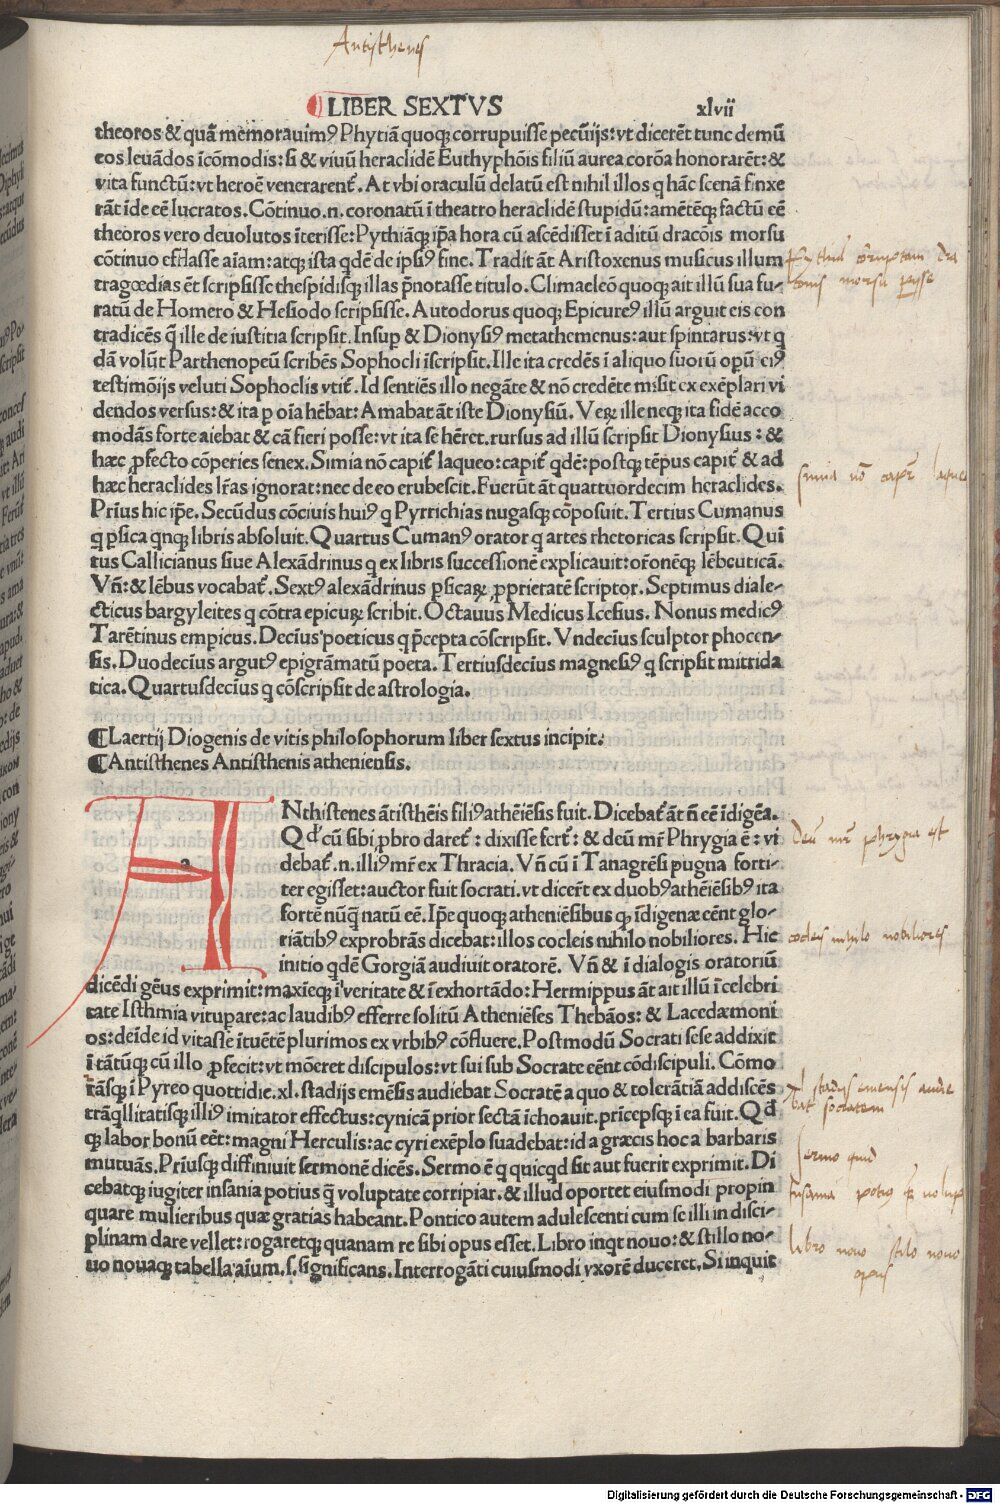 Antisthenes
LIBER SEXTVS xlvii
theoros & quā memorauimꝰ Phytiā quoqꝫ corrupuisse pecūijs: vt dicerēt tunc demū
eos leuādos īcōmodis: si & viuū heraclidē Euthyphōis filiū aurea corōa honorarēt: &
vita functū: vt heroē venerarent᷑. At vbi oraculū delatū est nihil illos q hāc scenā finxe
rāt īde eē lucratos. Cōtinuo.n. coronatū ī theatro heraclidē stupidū: amētēqꝫ factū eē
theoros vero deuolutos īterisse: Pythiāqꝫ ip̄a hora cū ascēdisset ī aditū dracōis morsu
cōtinuo efflasse aīam: atqꝫ ista qdē de ipsiꝰ fine. Tradit āt Aristoxenus musicus illum
tragœdias ēt scripsisse thespidisqꝫ illas p̄notasse titulo. Climaeleō quoqꝫ ait illū sua fu-
ratū de Homero & Hesiodo scripsisse. Autodorus quoqꝫ Epicureꝰ illū arguit eis con
tradicēs q̄ ille de iustitia scripsit. Insup & Dionysiꝰ metathemenus: aut spintarus: vt q
dā volūt Parthenopeū scribēs Sophocli īscripsit. Ille ita credēs ī aliquo suorū opū eiꝰ
testimōijs veluti Sophoclis vtit᷑. Id sentiēs illo negāte & nō credēte misit ex exēplari vi
dendos versus: & ita ꝑ oīa hēbat: Amabat āt iste Dionysiū. Veꝝ ille neqꝫ ita fidē acco
modās forte aiebat & cā fieri posse: vt ita se hēret. rursus ad illū scripsit Dionysius: &
hæc ꝓfecto cōperies senex. Simia nō capit᷑ laqueo: capit᷑ qdē: postqꝫ tēpus capit᷑ & ad
hæc heraclides lr̄as ignorat: nec de eo erubescit. Fuerūt āt quattuordecim heraclides.
Prīus hic ip̄e. Secūdus cōciuis huiꝰ q Pyrrichias nugasqꝫ cōposuit. Tertius Cumanus
q ꝑsica qnqꝫ libris absoluit. Quartus Cumanꝰ orator q artes rhetoricas scripsit. Quī
tus Callicianus siue Alexādrinus q ex libris successionē explicauit: or̄onēqꝫ lēbeuticā.
Vñ: & lēbus vocabat᷑. Sextꝰ alexādrinus ꝑsicaꝝ ꝓprietatē scriptor. Septimus diale-
cticus bargyleites q cōtra epicuꝝ scribit. Octauus Medicus Icesius. Nonus medicꝰ
Tarētinus empicus. Decīus poeticus q p̄cepta cōscripsit. Vndecīus sculptor phocen-
sis. Duodecīus argutꝰ epigrāmatū poeta. Tertiusdecīus magnesiꝰ q scripsit mitrida
tica. Quartusdecīus q cōscripsit de astrologia.
¶Laertij Diogenis de vitis philosophorum liber sextus incipit:
¶Antisthenes Antisthenis atheniensis.
ANthistenes ātisthēis filiꝰ athēiēsis fuit. Dicebat᷑ āt ñ eē īdigēa.
Qd cū sibi ꝓbro daret᷑: dixisse fert᷑: & deū mr̄ Phrygia ē: vi
debat᷑.n. illiꝰ mr̄ ex Thracia. Vñ cū ī Tanagrēsi pugna forti-
ter egisset: auctor fuit socrati. vt dicer̄t ex duobꝰ athēiēsibꝰ ita
fortē nūq̄ natū eē. Ip̄e quoqꝫ atheniēsibus qꝫ īdigenæ eēnt glo-
riātibꝰ exprobrās dicebat: illos cocleis nihilo nobiliores. Hic
initio qdē Gorgiā audiuit oratorē. Vñ & ī dialogis oratoriū
dicēdi gēus exprimit: maxīeqꝫ ī veritate & ī exhortādo: Hermippus āt ait illū ī celebri
tate Isthmia vitupare: ac laudibꝰ efferre solitū Atheniēses Thebāos: & Lacedæmoni
os: deīde id vitasse ītuētē plurimos ex vrbibꝰ cōfluere. Postmodū Socrati sese addixit
ī tātūqꝫ cū illo ꝓfecit: vt mōeret discipulos: vt sui sub Socrate eēnt cōdiscipuli. Cōmo
rāsqꝫ ī Pyreo quottidie. xl. stadijs emēsis audiebat Socratē a quo & tolerātiā addiscēs
trāqllitatisqꝫ illiꝰ imitator effectus: cynicā prior sectā īchoauit. prīcepsqꝫ ī ea fuit. Qd
qꝫ labor bonū eēt: magni Herculis: ac cyri exēplo suadebat: id a græcis hoc a barbaris
mutuās. Prīusqꝫ diffiniuit sermonē dicēs. Sermo ē q quicqd sit aut fuerit exprimit. Di
cebatqꝫ iugiter insania potius q̄ voluptate corripiar. & illud oportet eiusmodi propin
quare mulieribus quæ gratias habeant. Pontico autem adulescenti cum se illi in disci-
plinam dare vellet: rogaretqꝫ quanam re sibi opus esset. Libro inqt nouo: & stillo no-
uo nouaqꝫ tabella aīum. s. significans. Interrogāti cuiusmodi vxorē duceret. Si inquit
morsu
simia nō capit᷑ laqueo
Deū mr̄ phrygia est
cocleis nihilo nobiliores
xl stadijs emensis audie
bat socratem
Sermo quid
Insania potiꝰ q̄ volup
libro nouo stilo nouo
opus
Digitalisierung gefördert durch die Deutsche Forschungsgemeinschaft - DFG